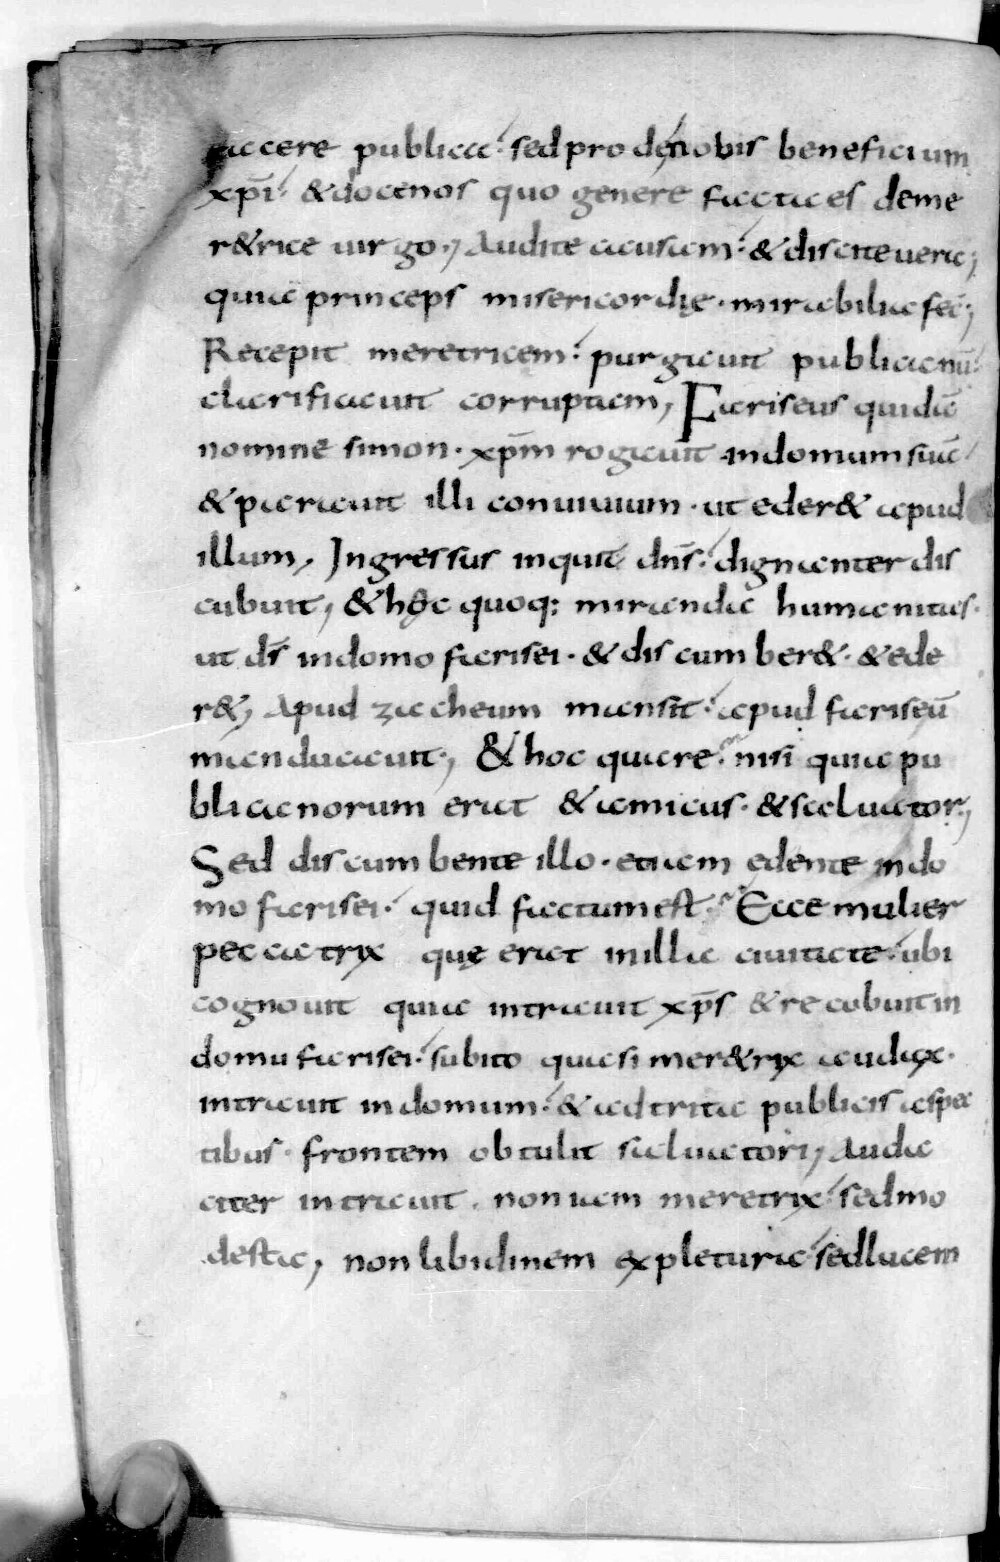 tacere publica· sed prode nobis beneficium
xp̄i· & doce nos quo genere facta es de me
r&rice uirgo; Audite causam· & discite uera;
quia princeps misericordię· mirabilia fec̄;
Recepit meretricem· purgauit publicanū·
clarificauit corruptam; Fariseus quidā
nomine simon· xp̄m rogauit in domum suā
& parauit illi conuiuium· ut eder& apud
illum; Ingressus inquit dn̄s· dignanter dis
cubuit; & hęc quoq: miranda humanitas·
ut ds̄ in domo farisei· & discumber&· & ede
r&; Apud zacheum mansit· apud fariseū
manducauit; & hoc quare· nisi quia pu
blicanorum erat & amicus· & saluator;
Sed discumbente illo· etiam edente in do
mo farisei· quid factum est· Ecce mulier
peccatrix quę erat in illa ciuitate· ubi
cognouit quia intrauit xp̄s & recobuit in
domu farisei· subito quasi mer&rix audax·
intrauit in domum· & adtrita publicis aspec
tibus· frontem obtulit saluatori; Auda
citer intrauit· non iam meretrix· sed mo
desta; non libidinem expletura· sed lucem